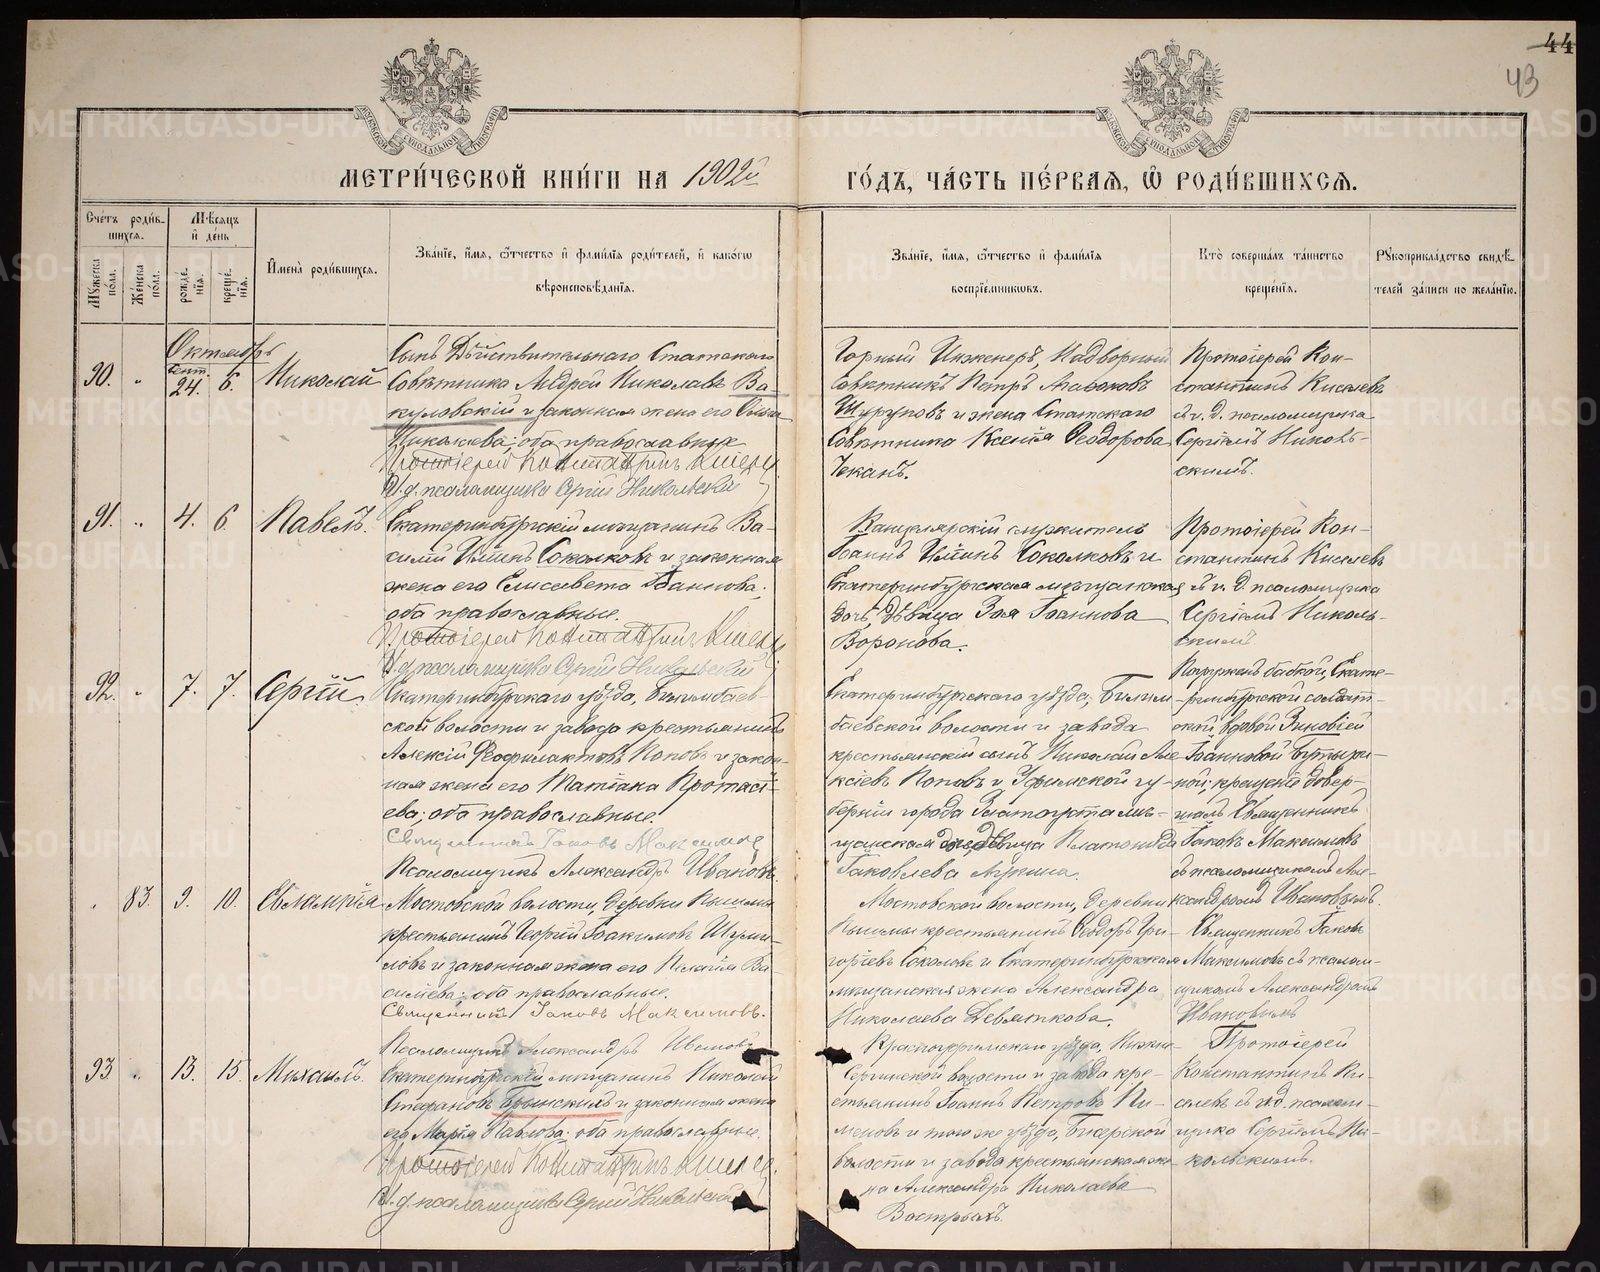 44
43
МЕТРИ́ЧЕСКОЙ КНИ́ГИ НА 1902й
ГО́ДЪ, ЧА́СТЬ ПЕ́РВАЯ, Ѡ РОДИ́ВШИХСЯ.
Сче́тъ роди́в-
шихся.
Мꙋ́жеска по́ла.
Же́нска по́ла.
Мѣ́сяцъ
и҆ де́нь
рожде́-
нїя.
креще́-
нїя.
И҆мена̀ роди́вшихся.
Зва́нїе, и҆́мя, ѻ҆́тчество и҆ фами́лїя роди́телей, и҆ како́гѡ
вѣроисповѣ́данїя.
Зва́нїе, и҆́мя, ѻ҆́тчество и҆ фами́лїя
воспрїе́мниковъ.
Кто̀ соверша́лъ та́инство
креще́нїя.
Рꙋкоприкла́дство свидѣ́-
телей за́писи по жела́нїю.
Октябрь
90. " Сент. 24. 6. Николай
Сынъ Дѣйствительнаго Статскаго
Совѣтника Андрей Николаевъ Ва-
куловскій и законная жена его Ольга
Николаева; оба православные
Протоіерей Константинъ
И. д. псаломщика Сергій Никольскій
Горный Инженеръ, Надворный
Совѣтникъ Петръ
Шуруповъ и жена Статскаго
Совѣтника Ксенія Ѳеодорова
Чеканъ.
Протоіерей Кон-
стантинъ Киселевъ
съ и. д. псаломщика
Сергіемъ Николь-
скимъ.
91. " 4. 6. Павелъ.
Екатеринбургскій мѣщанинъ Ва-
силій Соколковъ и законная
жена его Елисавета Іоаннова;
оба православные.
Протоіерей Константинъ
И. д. псаломщика Сергій Никольскій
Канцелярскій служитель
Іоаннъ Соколковъ и
Екатеринбургская мѣщанская
дочь, дѣвица Зоя Іоаннова
Воронова.
Протоіерей Кон-
стантинъ Киселевъ
съ и. д. псаломщика
Сергіемъ Николь-
скимъ
92. " 7. 7. Сергій
Екатеринбургскаго уѣзда, Билимбаев-
ской волости и завода крестьянинъ
Алексій Ѳеофилактовъ Поповъ и закон-
ная жена его Татіана Протасі-
ева; оба православные.
Священникъ Іаковъ Максимовъ
Псаломщикъ Александръ Ивановъ.
Екатеринбургскаго уѣзда, Билим-
баевской волости и завода
крестьянскій сынъ Николай Але-
ксіевъ Поповъ и Уфимской гу-
берніи города Златоуста мѣ-
щанская дочь, дѣвица Платонида
Іаковлева
Погружалъ бабкой, Екате-
ринбургской солдат-
кой, вдовой Зиновіей
Іоанновой
крещеніе довер-
шалъ Священникъ
Іаковъ Максимовъ
съ псаломщикомъ Але-
ксандромъ Ивановымъ.
" 83. 9. 10. Евлампія
Мостовской волости, деревни Пышмы
крестьянинъ Георгій Іоакимовъ Шуми-
ловъ и законная жена его Пелагія Ва-
силіева; оба православные.
Священникъ Іаковъ Максимовъ.
Псаломщикъ Александръ Ивановъ
Мостовской волости, деревни
Пышмы крестьянинъ Ѳеодоръ Гри-
горіевъ Соколовъ и Екатеринбургская
мѣщанская жена Александра
Николаева Девяткова.
Священникъ Іаковъ
Максимовъ съ псалом-
щикомъ Александромъ
Ивановымъ
93. " 13. 15. Михаилъ.
Екатеринбургскій мѣщанинъ Николай
Стефановъ Брынскихъ и законная жена
его Марія Павлова; оба православные.
Протоіерей Константинъ
И. д. псаломщика Сергій Никольскій
Красноуфимскаго уѣзда, Нижне-
Сергинской волости и завода кре-
стьянинъ Іоаннъ Петровъ Пи-
меновъ и того же уѣзда, Бисертской
волости и завода крестьянская же-
на Александра Николаева
Вострыхъ.
Протоіерей
Константинъ Ки-
селевъ съ и. д. псалом-
щика Сергіемъ Ни-
кольскимъ.